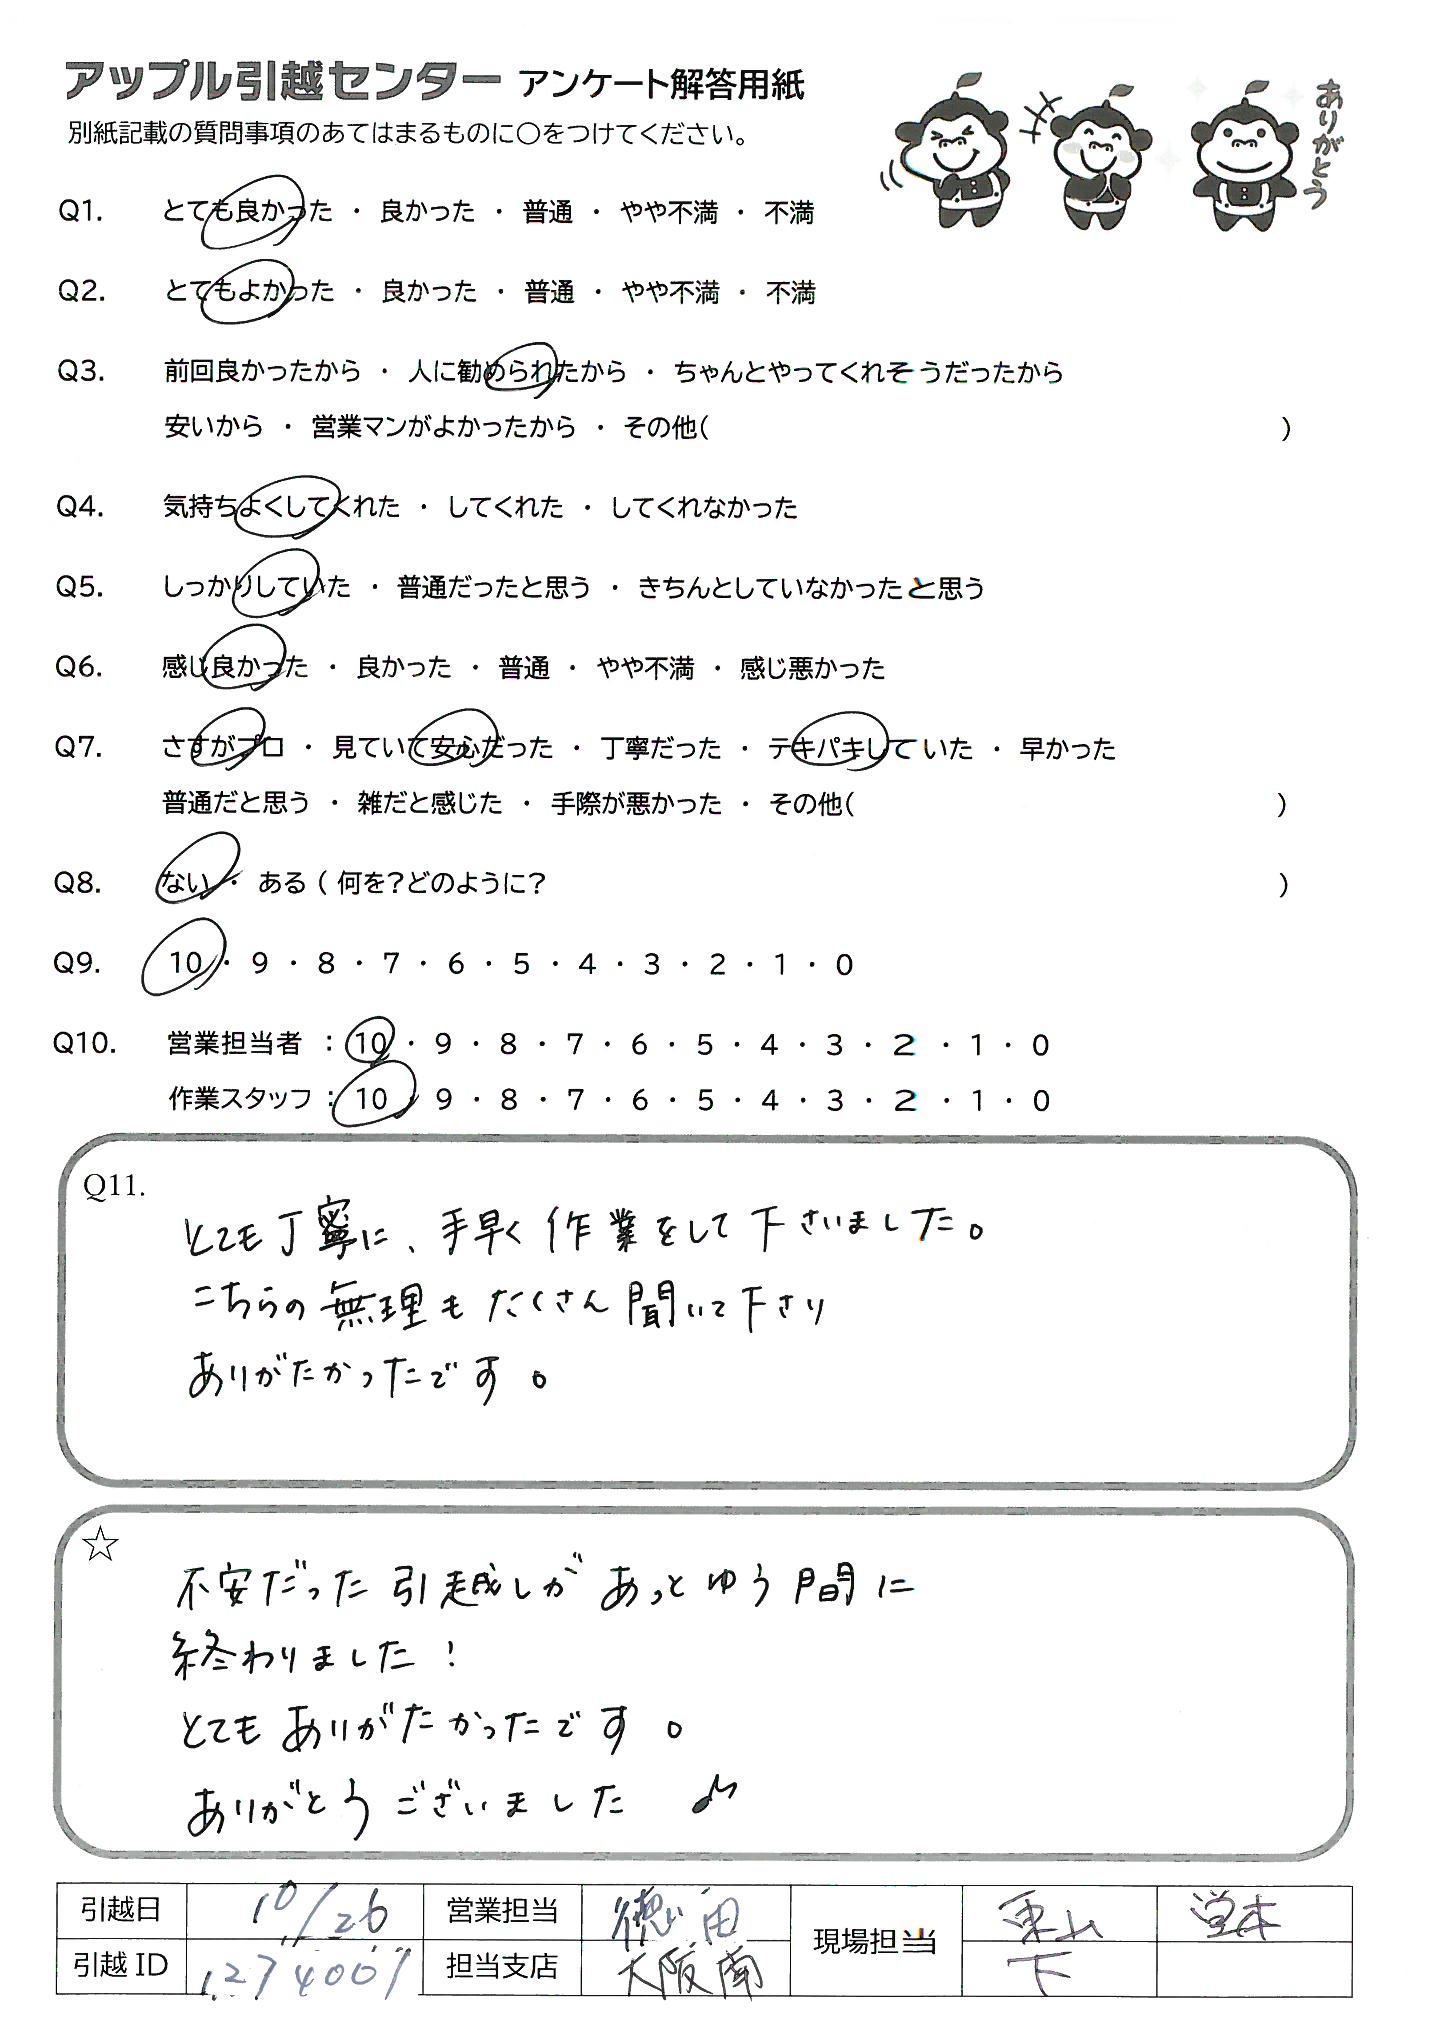 アップル引越センター アンケート解答用紙
ありがとう
別紙記載の質問事項のあてはまるものに○をつけてください。
Q1. とても良かった ・ 良かった ・ 普通 ・ やや不満 ・ 不満
Q2. とてもよかった ・ 良かった ・ 普通 ・ やや不満 ・ 不満
Q3. 前回良かったから ・ 人に勧められたから ・ ちゃんとやってくれそうだったから
安いから ・ 営業マンがよかったから ・ その他( )
Q4. 気持ちよくしてくれた ・ してくれた ・ してくれなかった
Q5. しっかりしていた ・ 普通だったと思う ・ きちんとしていなかったと思う
Q6. 感じ良かった ・ 良かった ・ 普通 ・ やや不満 ・ 感じ悪かった
Q7. さすがプロ ・ 見ていて安心だった ・ 丁寧だった ・ テキパキしていた ・ 早かった
普通だと思う ・ 雑だと感じた ・ 手際が悪かった ・ その他( )
Q8. ない ・ ある ( 何を?どのように? )
Q9. 10 ・ 9 ・ 8 ・ 7 ・ 6 ・ 5 ・ 4 ・ 3 ・ 2 ・ 1 ・ 0
Q10. 営業担当者 : 10 ・ 9 ・ 8 ・ 7 ・ 6 ・ 5 ・ 4 ・ 3 ・ 2 ・ 1 ・ 0
作業スタッフ : 10 ・ 9 ・ 8 ・ 7 ・ 6 ・ 5 ・ 4 ・ 3 ・ 2 ・ 1 ・ 0
Q11.
とても丁寧に、手早く作業をして下さいました。
こちらの無理もたくさん聞いて下さり
ありがたかったです。
☆
不安だった引越しがあっとゆう間に
終わりました!
とてもありがたかったです。
ありがとうございました♪
引越日 10/26 営業担当 徳田 現場担当 東山 堂本
引越ID 1274007 担当支店 大阪南 下